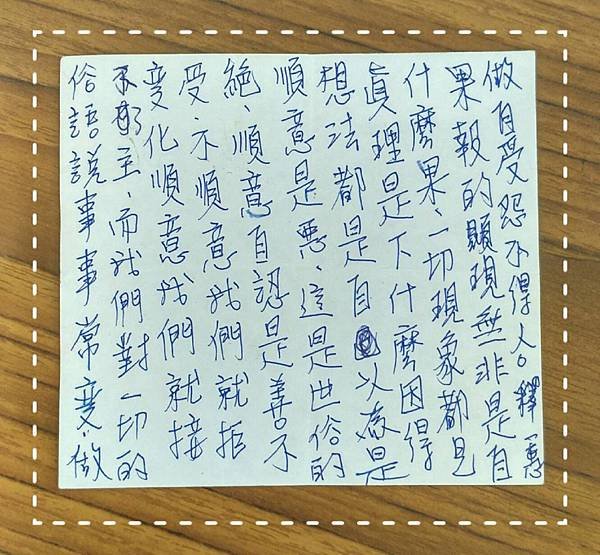 俗語說事事常變、做
不主、而我們對一切的
變化順意我們就接
受、不順意我們就拒
絕、順意自認是善不
順意是惡、這是世俗的
想法都是自以為是
真理是下什麼因得
什麼果、一切現象都是
果報的顯現無非是自
做自受怨不得人。釋一惠